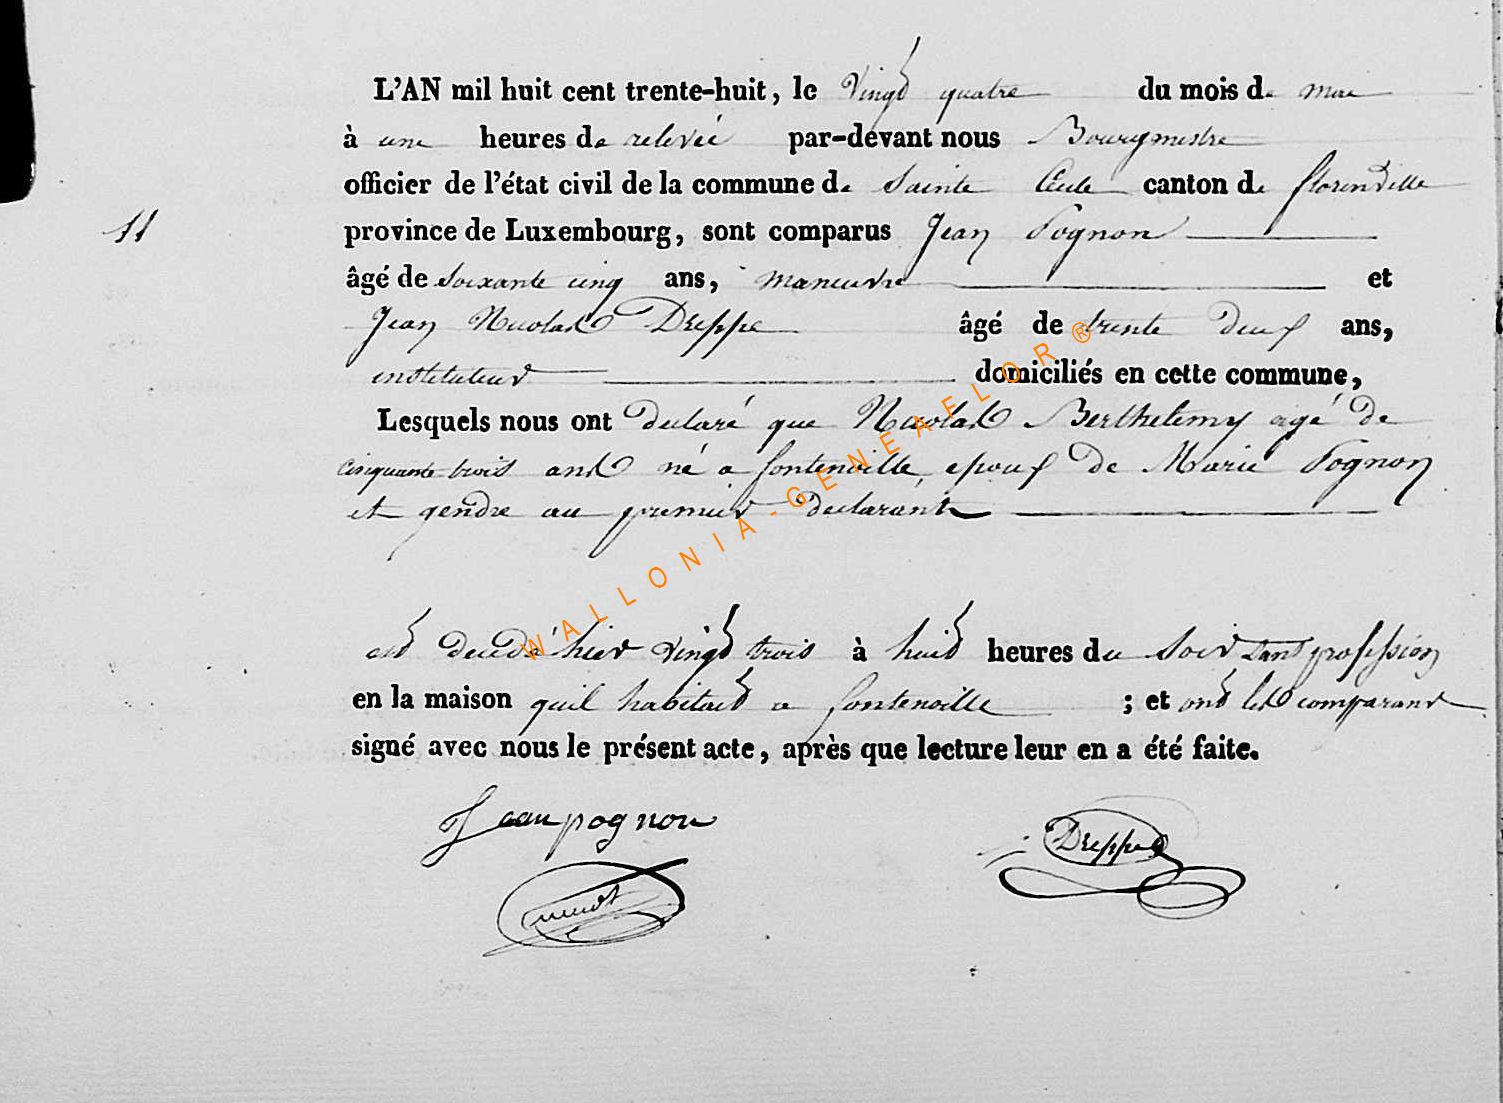 L'AN mil huit cent trente-huit, le vingt quatre du mois de mai
à une heures de relevée par-devant nous Bourgmestre
officier de l'état civil de la commune de Sainte Cecile canton de florenville
11
province de Luxembourg, sont comparus Jean Pognon
âgé de soixante cinq ans, maneuvre et
Jean Nicolas Dreppe âgé de trente deux ans,
instituteur domiciliés en cette commune,
Lesquels nous ont declaré que Nicolas Berthelemy agé de
cinquante trois ans né a fontenoille, epoux de Marie Pognon
et gendre au premier declarant
est decedé hier vingt trois à huit heures du soir sans profession
en la maison quil habitait a fontenoille ; et ont les comparant
signé avec nous le présent acte, après que lecture leur en a été faite.
Jean pognon
Dreppe
WALLONIA-GENEAFLOR®